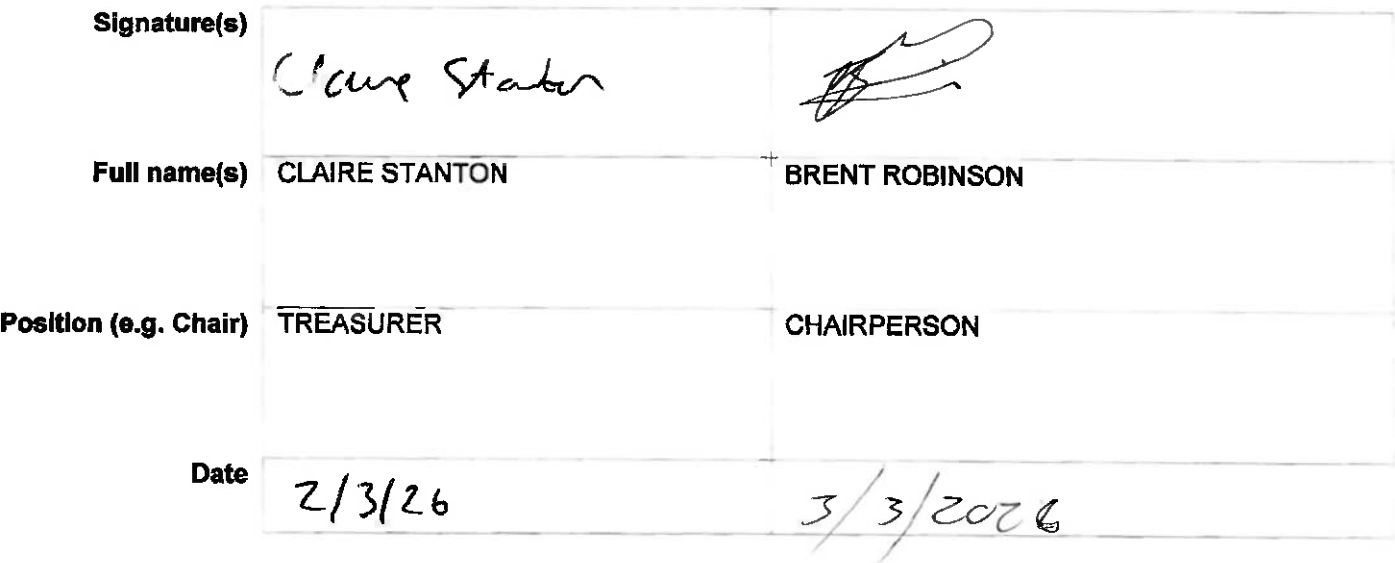 Signature(s)
Claire Stanton
Full name(s) CLAIRE STANTON BRENT ROBINSON
Position (e.g. Chair) TREASURER CHAIRPERSON
Date 2/3/26 3/3/2026